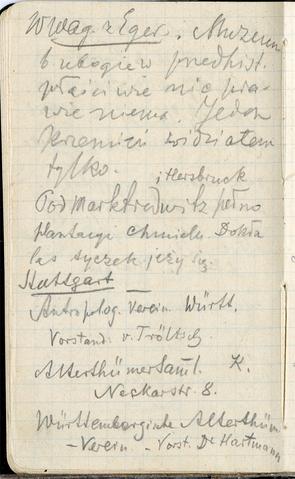 Wwag. z Eger. Muzeum
b. ubogie w predhist.
właściwie nic pra-
wie niema. Jeden
krzemień widziałem
tylko.
i Hersbruck
Pod Marktredwitz pełno
plantacyi chmielu. Dokła
las tyczek jeży się.
Stuttgart
Antropolog. Verein Württ.
Vorstand. v. Tröltsch.
Alterthümer Saml. K.
Neckarstr. 8.
Württembergische Alterthüm.
-Verein - Vorst. Dr Hartmann